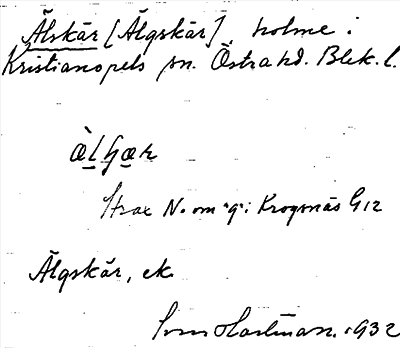 Älskär [Älgskär], holme i
Kristianopels sn. Östra hd. Blek. l.
Strax N. om "g" i Krogsnäs G12
Älgskär, ek.
Sven Hartman. 1932